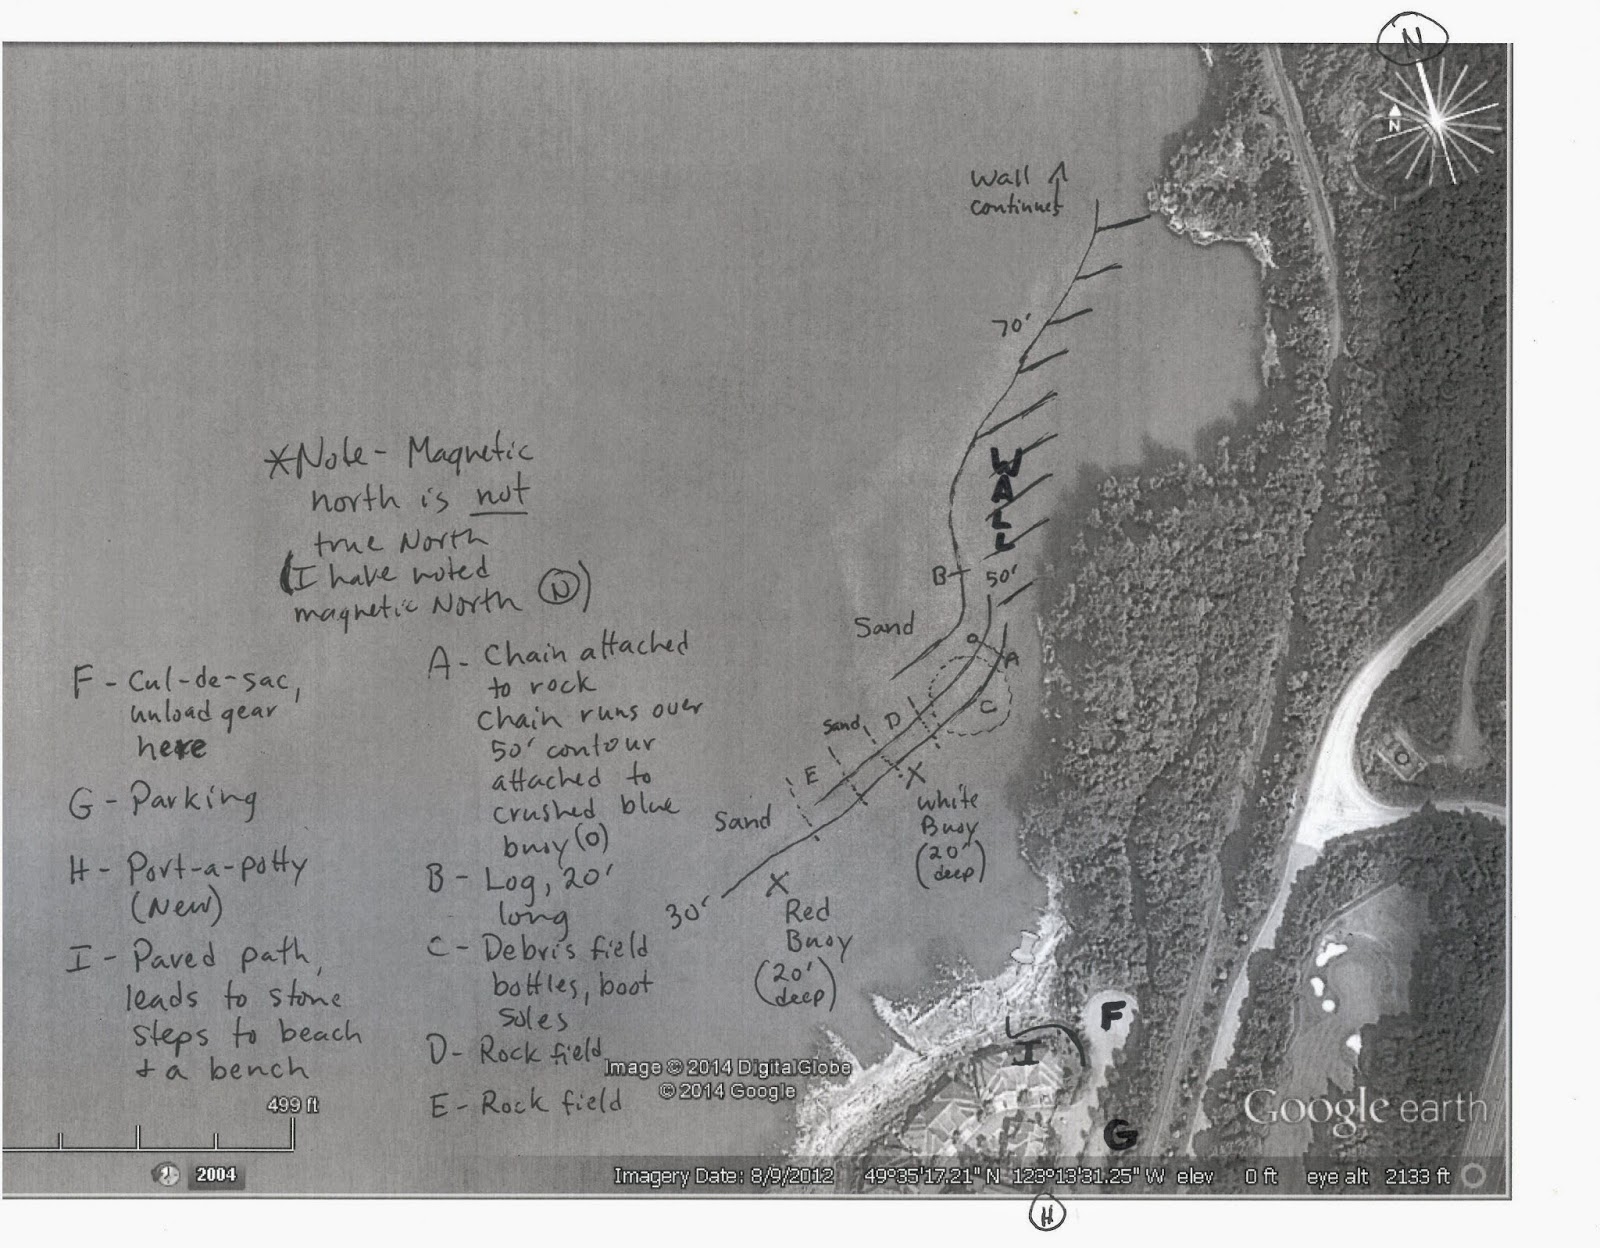 N
N
Wall ↑
continues
70'
*Note - Magnetic
north is not
true North
(I have noted
magnetic North Ⓝ)
WALL
B
50'
Sand
A
C
Sand
D
E
Sand
30'
X
White
Buoy
(20'
deep)
X
Red
Buoy
(20'
deep)
F - Cul-de-sac,
unload gear
here
G - Parking
H - Port-a-potty
(New)
I - Paved path,
leads to stone
steps to beach
+ a bench
A - Chain attached
to rock
Chain runs over
50' contour
attached to
crushed blue
buoy (O)
B - Log, 20'
long
C - Debris field
bottles, boot
soles
D - Rock field
E - Rock field
F
I
G
Image © 2014 DigitalGlobe
© 2014 Google
Google earth
499 ft
2004
Imagery Date: 8/9/2012 49°35'17.21" N 123°13'31.25" W elev 0 ft eye alt 2133 ft
H